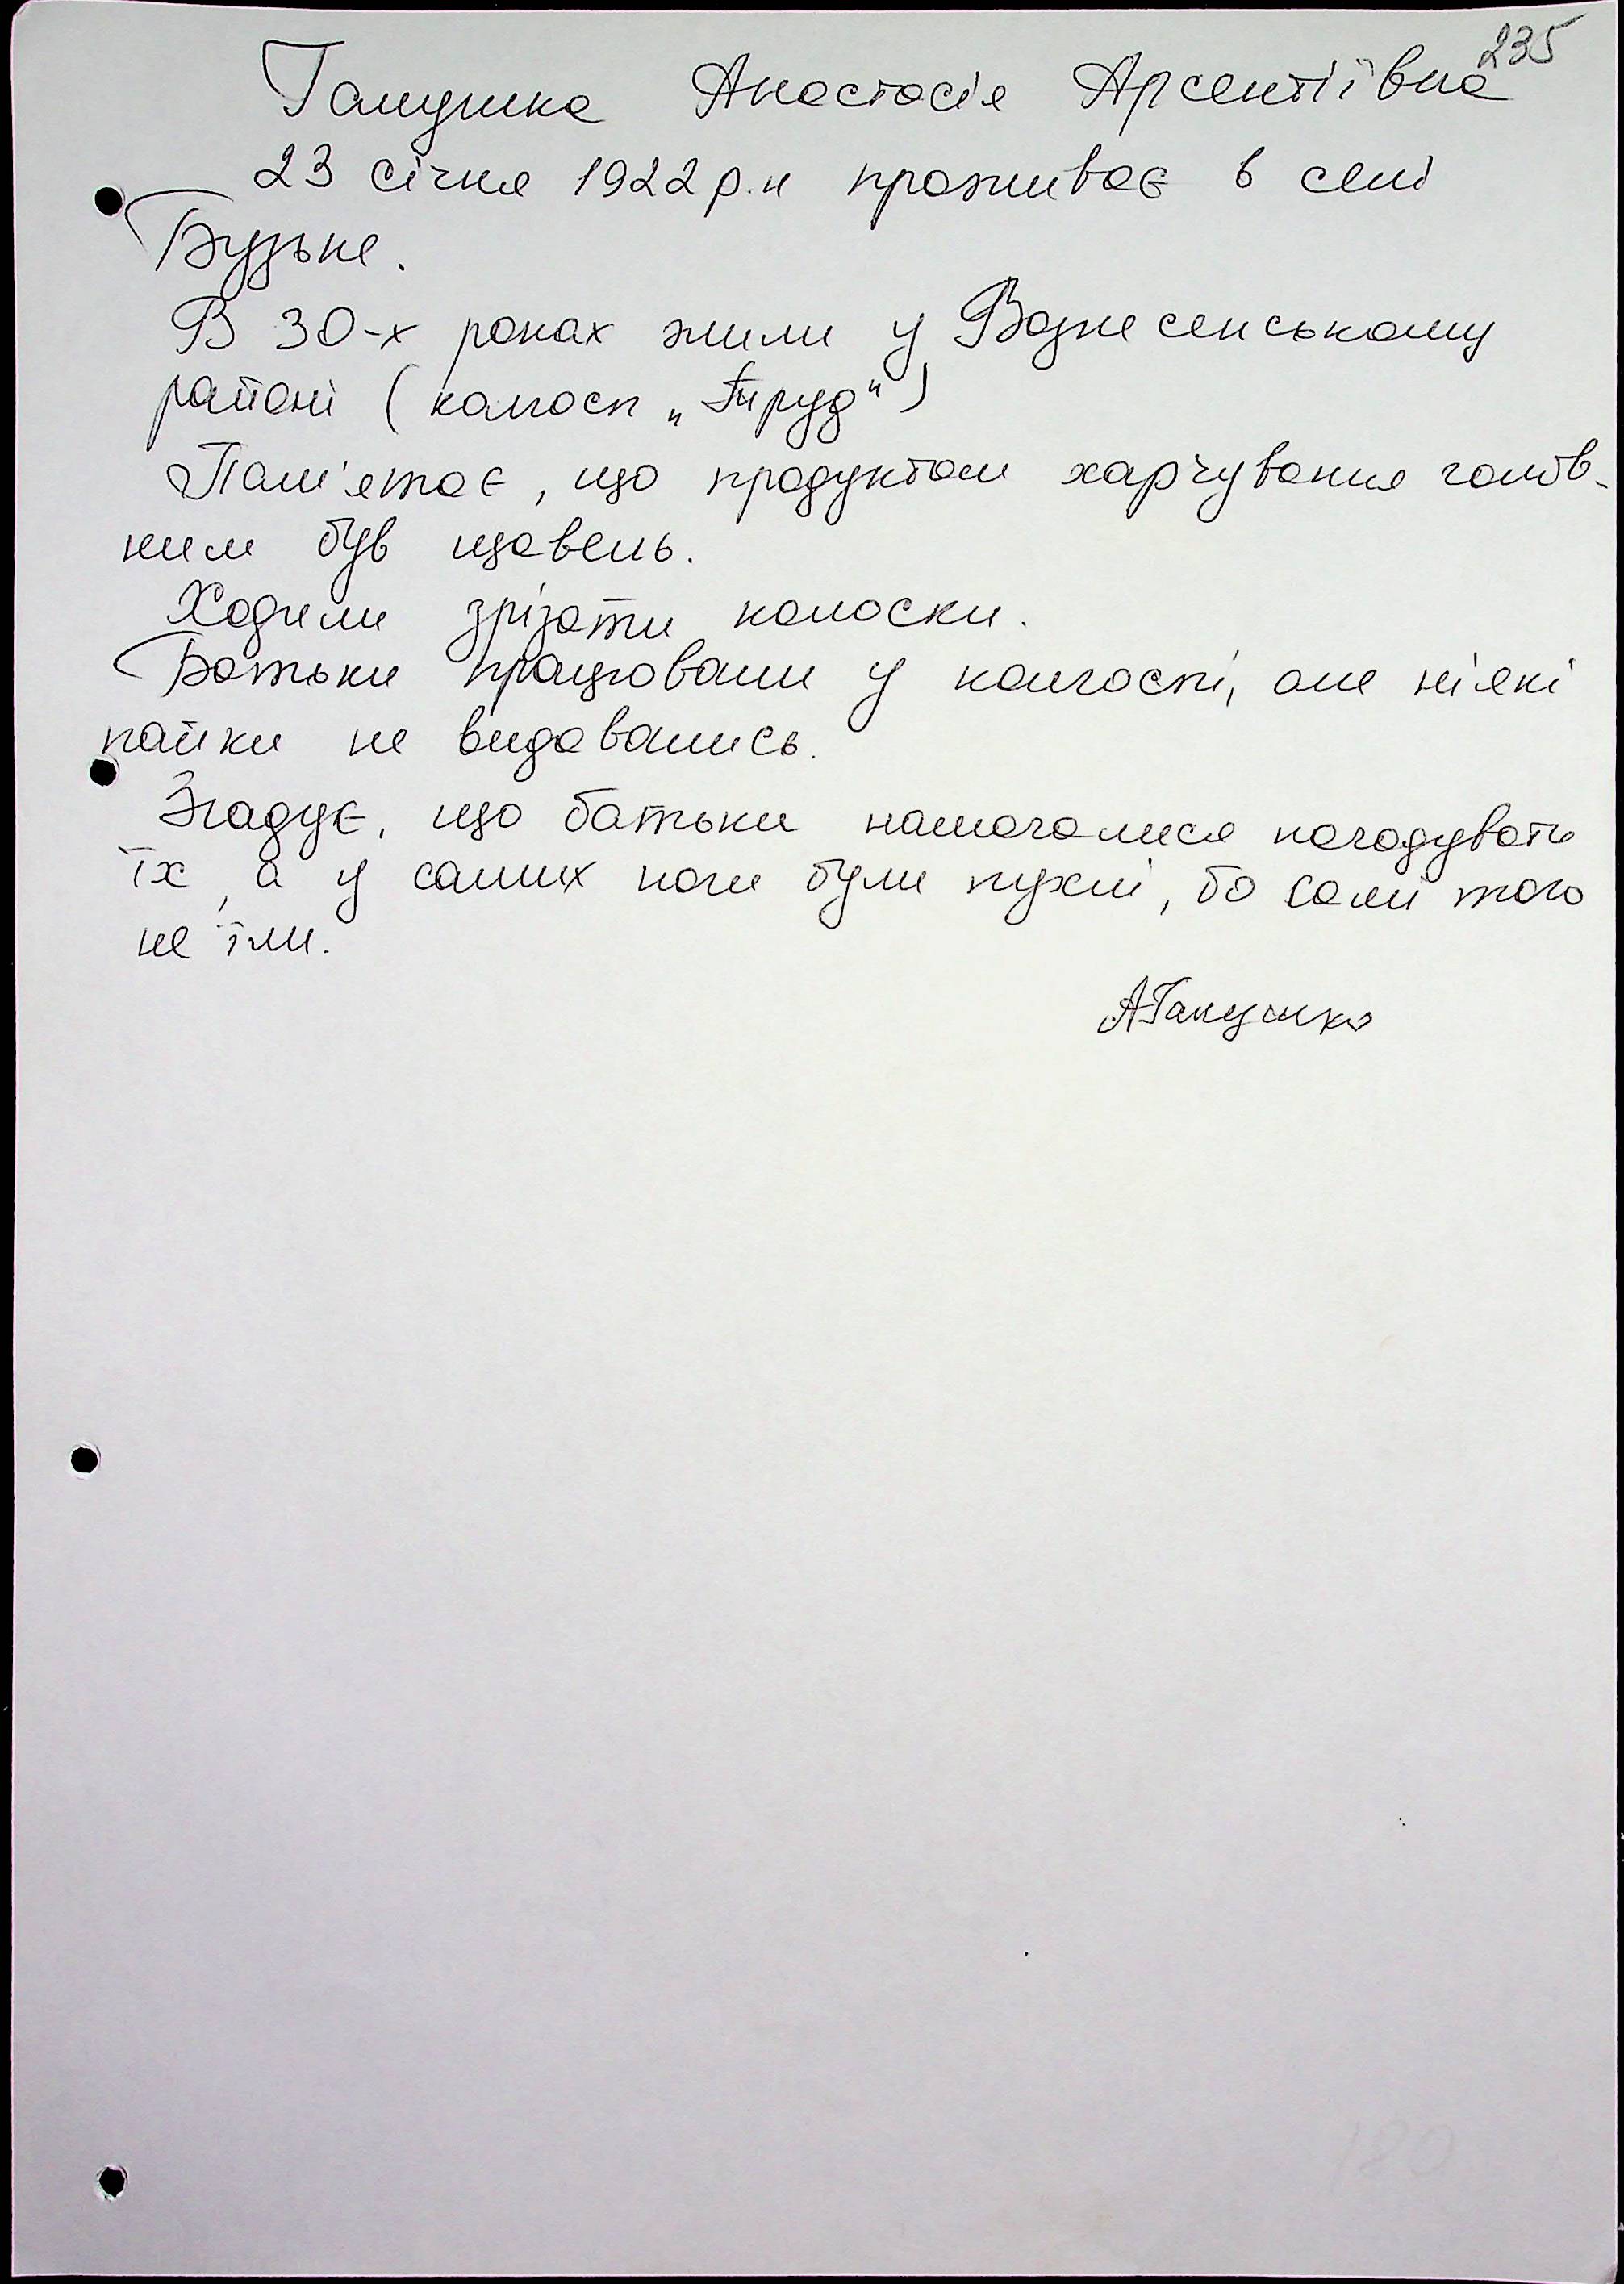 235
Галушка Анастасія Арсентіївна
23 січня 1922 р.н проживає в селі
Бузьке.
В 30-х роках жили у Вознесенському
районі (колгосп „Труд“)
Пам'ятає, що продуктом харчування голов-
ним був щавель.
Ходили зрізати колоски.
Батьки працювали у колгоспі, але ніякі
пайки не видавались.
Згадує, що батьки намогалися погодувати
їх, а у самих ноги були пухлі, бо самі того
не їли.
АГалушко
180